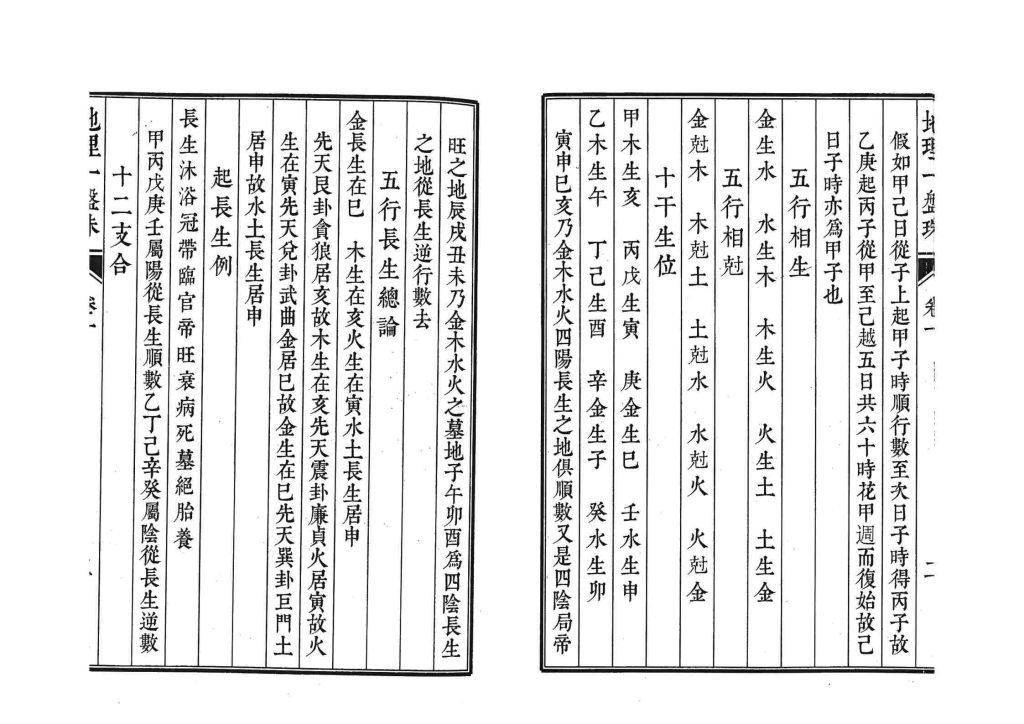 地理一盤珠 卷一 二
假如甲己日從子上起甲子時順行數至次日子時得丙子故
乙庚起丙子從甲至己越五日共六十時花甲週而復始故己
日子時亦爲甲子也
五行相生
金生水 水生木 木生火 火生土 土生金
五行相尅
金尅木 木尅土 土尅水 水尅火 火尅金
十干生位
甲木生亥 丙戊生寅 庚金生巳 壬水生申
乙木生午 丁己生酉 辛金生子 癸水生卯
寅申巳亥乃金木水火四陽長生之地俱順數又是四陰局帝
旺之地辰戌丑未乃金木水火之墓地子午卯酉爲四陰長生
之地從長生逆行數去
五行長生總論
金長生在巳 木生在亥火生在寅水土長生居申
先天艮卦貪狼居亥故木生在亥先天震卦廉貞火居寅故火
生在寅先天兌卦武曲金居巳故金生在巳先天巽卦巨門土
居申故水土長生居申
起長生例
長生沐浴冠帶臨官帝旺衰病死墓絕胎養
甲丙戊庚壬屬陽從長生順數乙丁己辛癸屬陰從長生逆數
十二支合
地理一盤珠 卷一